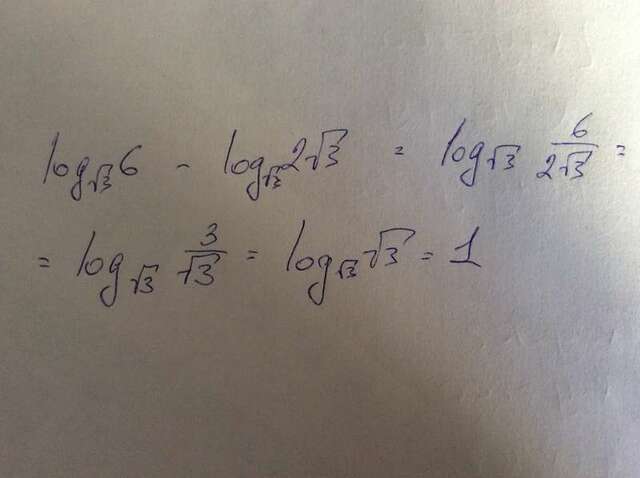 log_√3 6 - log_√3 2√3 = log_√3 6/2√3 =
= log_√3 3/√3 = log_√3 √3 = 1